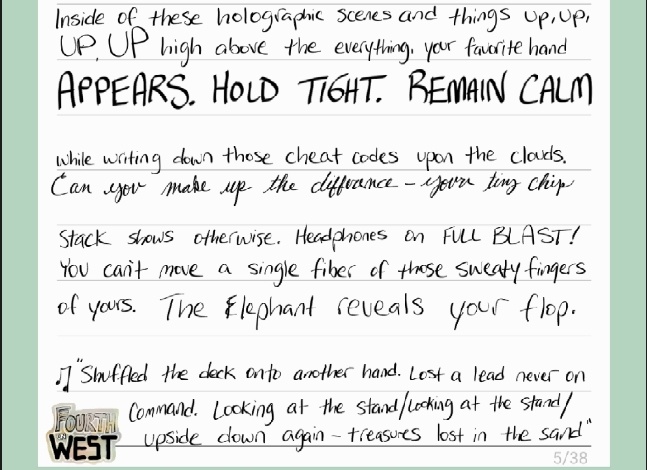 Inside of these holographic scenes and things up, up,
UP, UP high above the everything. your favorite hand
APPEARS. HOLD TIGHT. REMAIN CALM
while writing down those cheat codes upon the clouds.
Can you make up the diffrance - your tiny chip
Stack shows otherwise. Headphones on FULL BLAST!
You can't move a single fiber of those sweaty fingers
of yours. The Elephant reveals your flop.
♫"Shuffled the deck onto another hand. Lost a lead never on
Command. Looking at the stand/looking at the stand/
upside down again - treasures lost in the sand"
FOURTH
ON
WEST
5/38